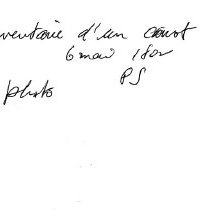 ventaire d'un canot
6 mai 180
PS
photo